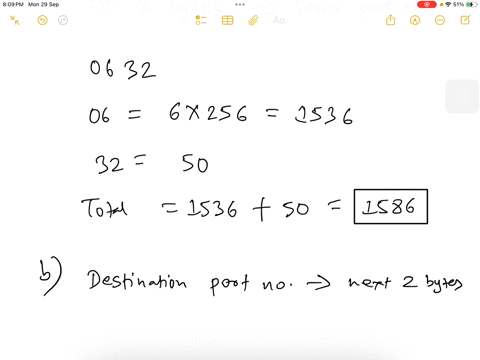 8:09 PM Mon 29 Sep
51%
Aa
06 32
06 = 6 × 256 = 1536
32 = 50
Total = 1536 + 50 = 1586
b) Destination port no. → next 2 bytes